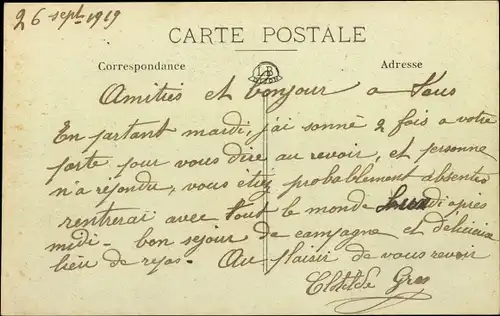 26 sept 1919
CARTE POSTALE
Correspondance
LB
Adresse
Amities et bonjour a tous
En partant mardi, j'ai sonné 2 fois a votre
porte pour vous dire au revoir, et personne
n'a répondu, vous étiez probablement absentes
rentrerai avec tout le monde Lundi après
midi - bon sejour de campagne et délicieux
lieu de repos. Au plaisir de vous revoir
Clotilde Gres